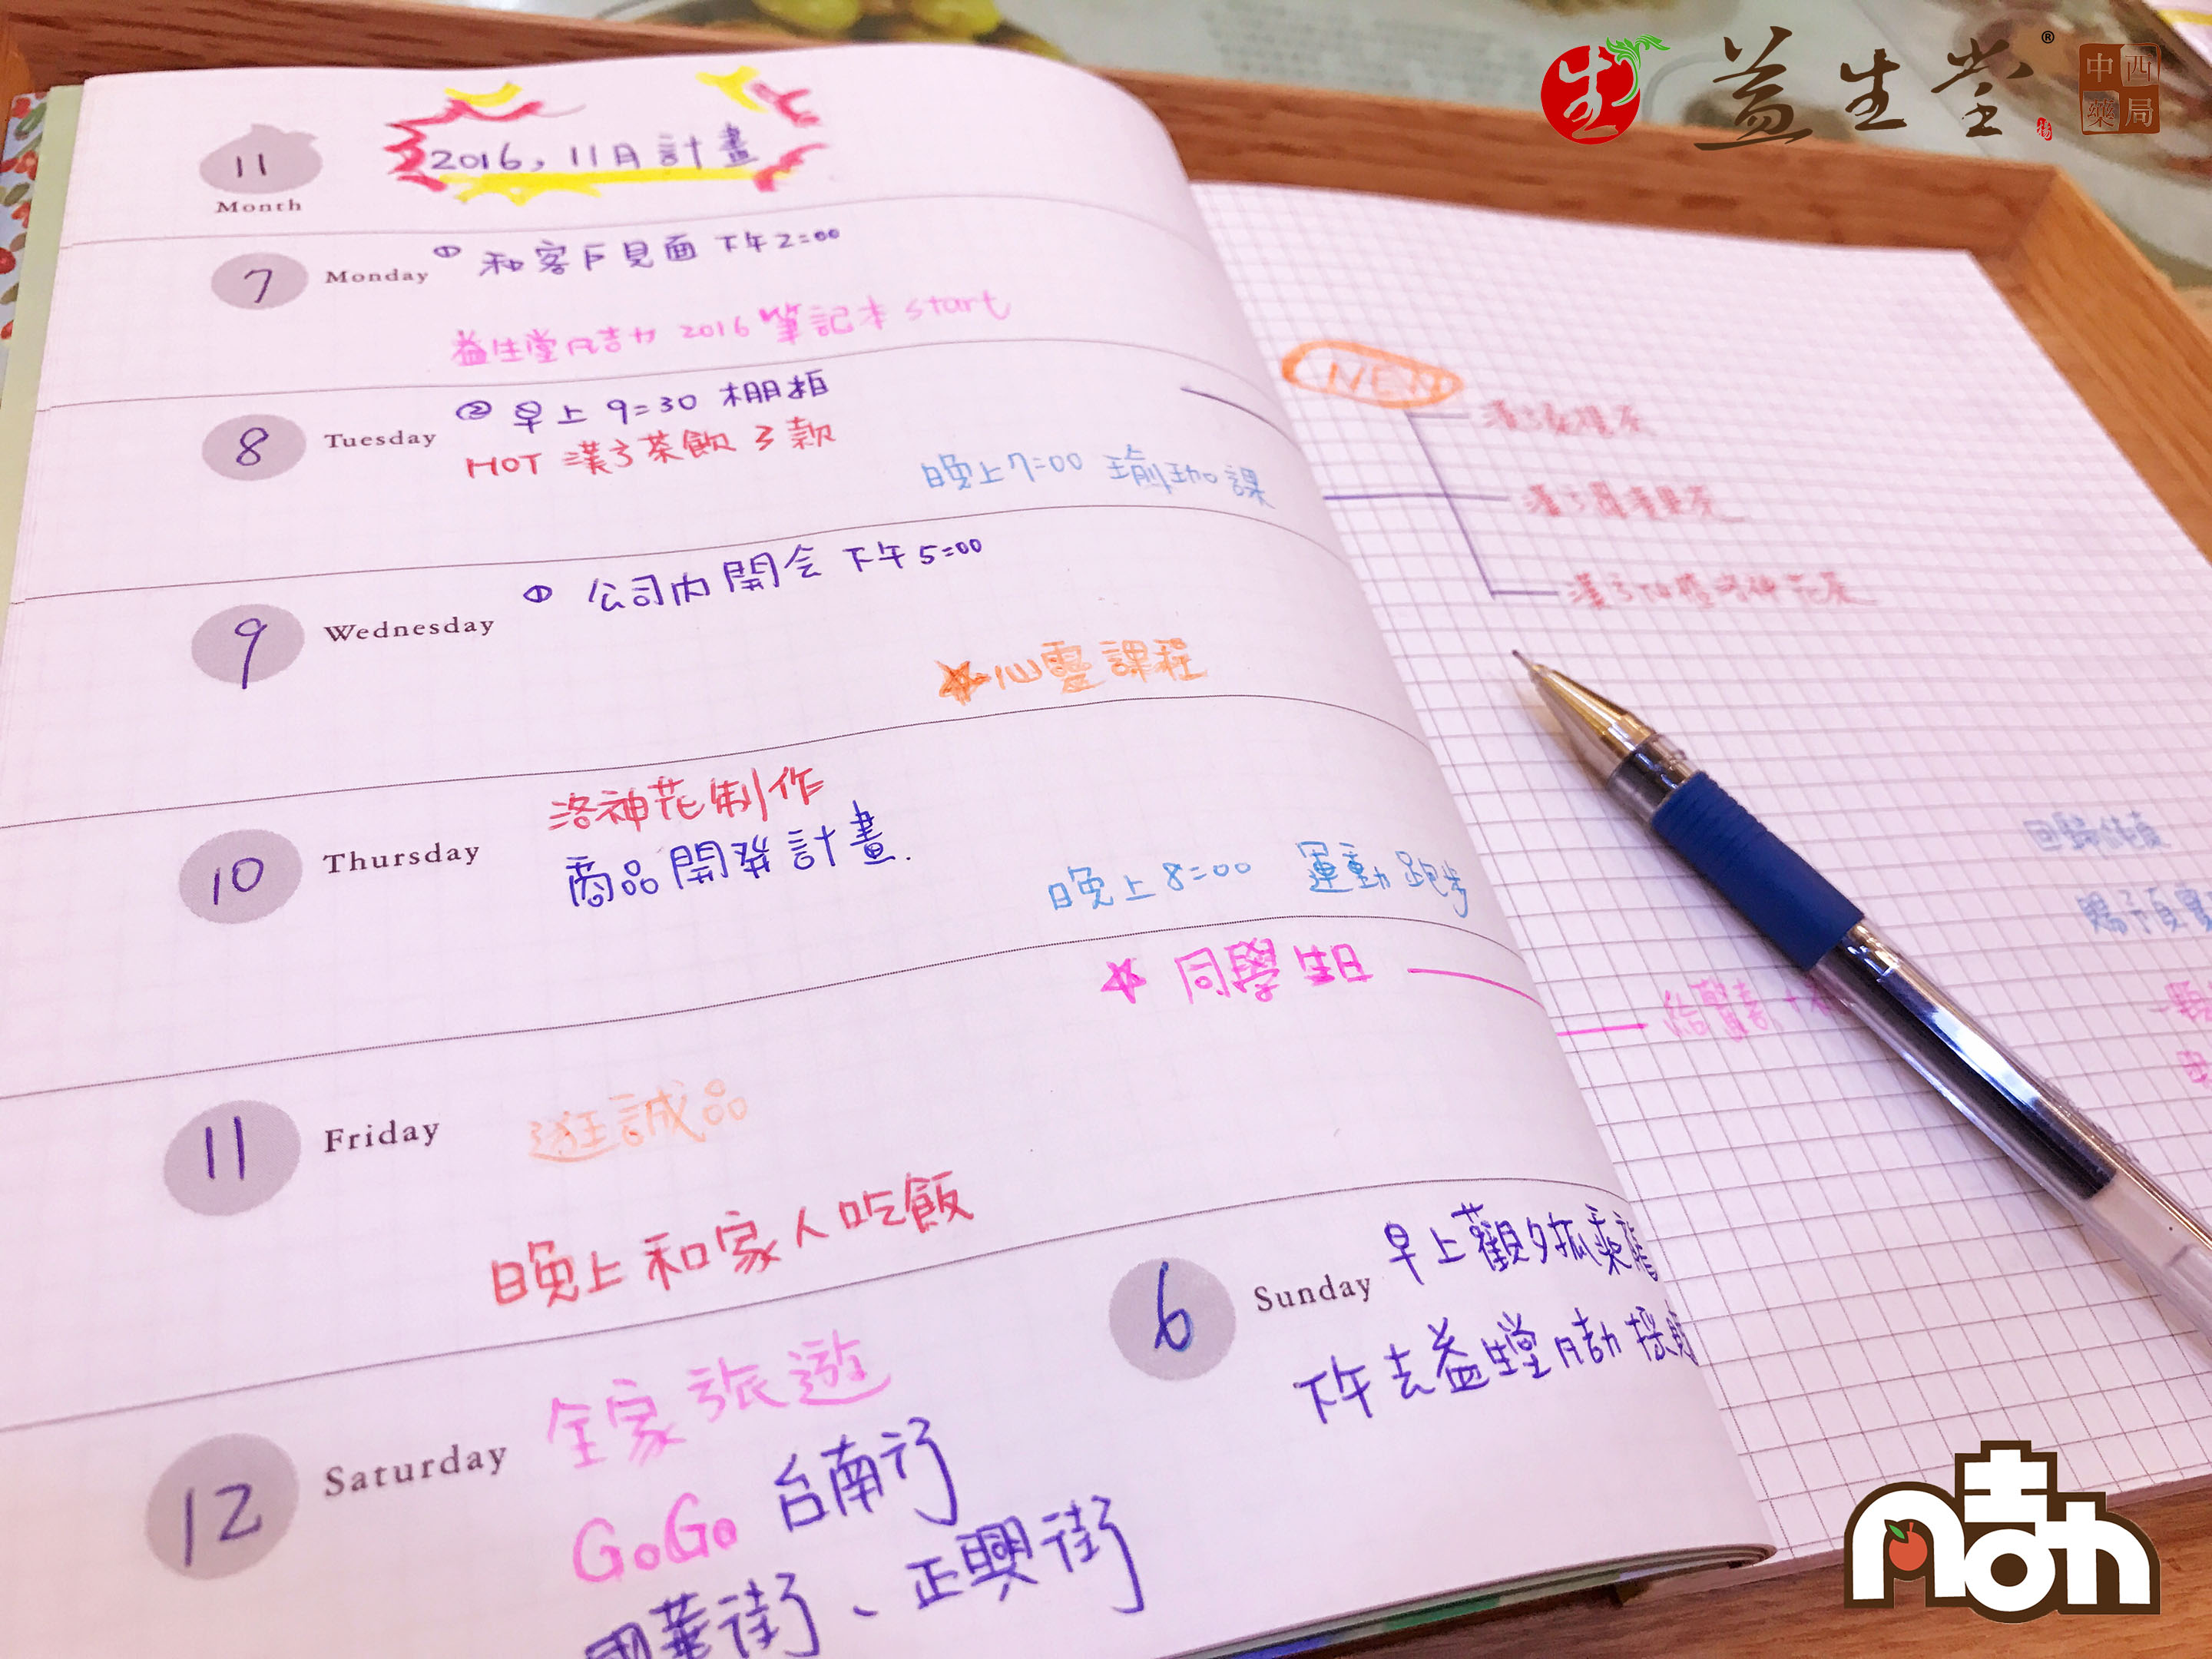 益生堂®
中西藥局
11
Month
2016, 11月計畫
7
Monday
① 和客戶見面 下午2:00
益生堂 2016 筆記本 start
8
Tuesday
② 早上 9:30 棚拍
HOT 漢方茶飲 3款
晚上7:00 瑜珈課
9
Wednesday
① 公司內開会 下午5:00
心靈課程
10
Thursday
洛神花制作
商品開發計畫.
晚上8:00 運動 跑步
同學生日
11
Friday
逛誠品
晚上和家人吃飯
12
Saturday
全家旅遊
GoGo 台南行
國華街、正興街
6
Sunday
早上觀夕
下午去益生堂
NEW
回歸